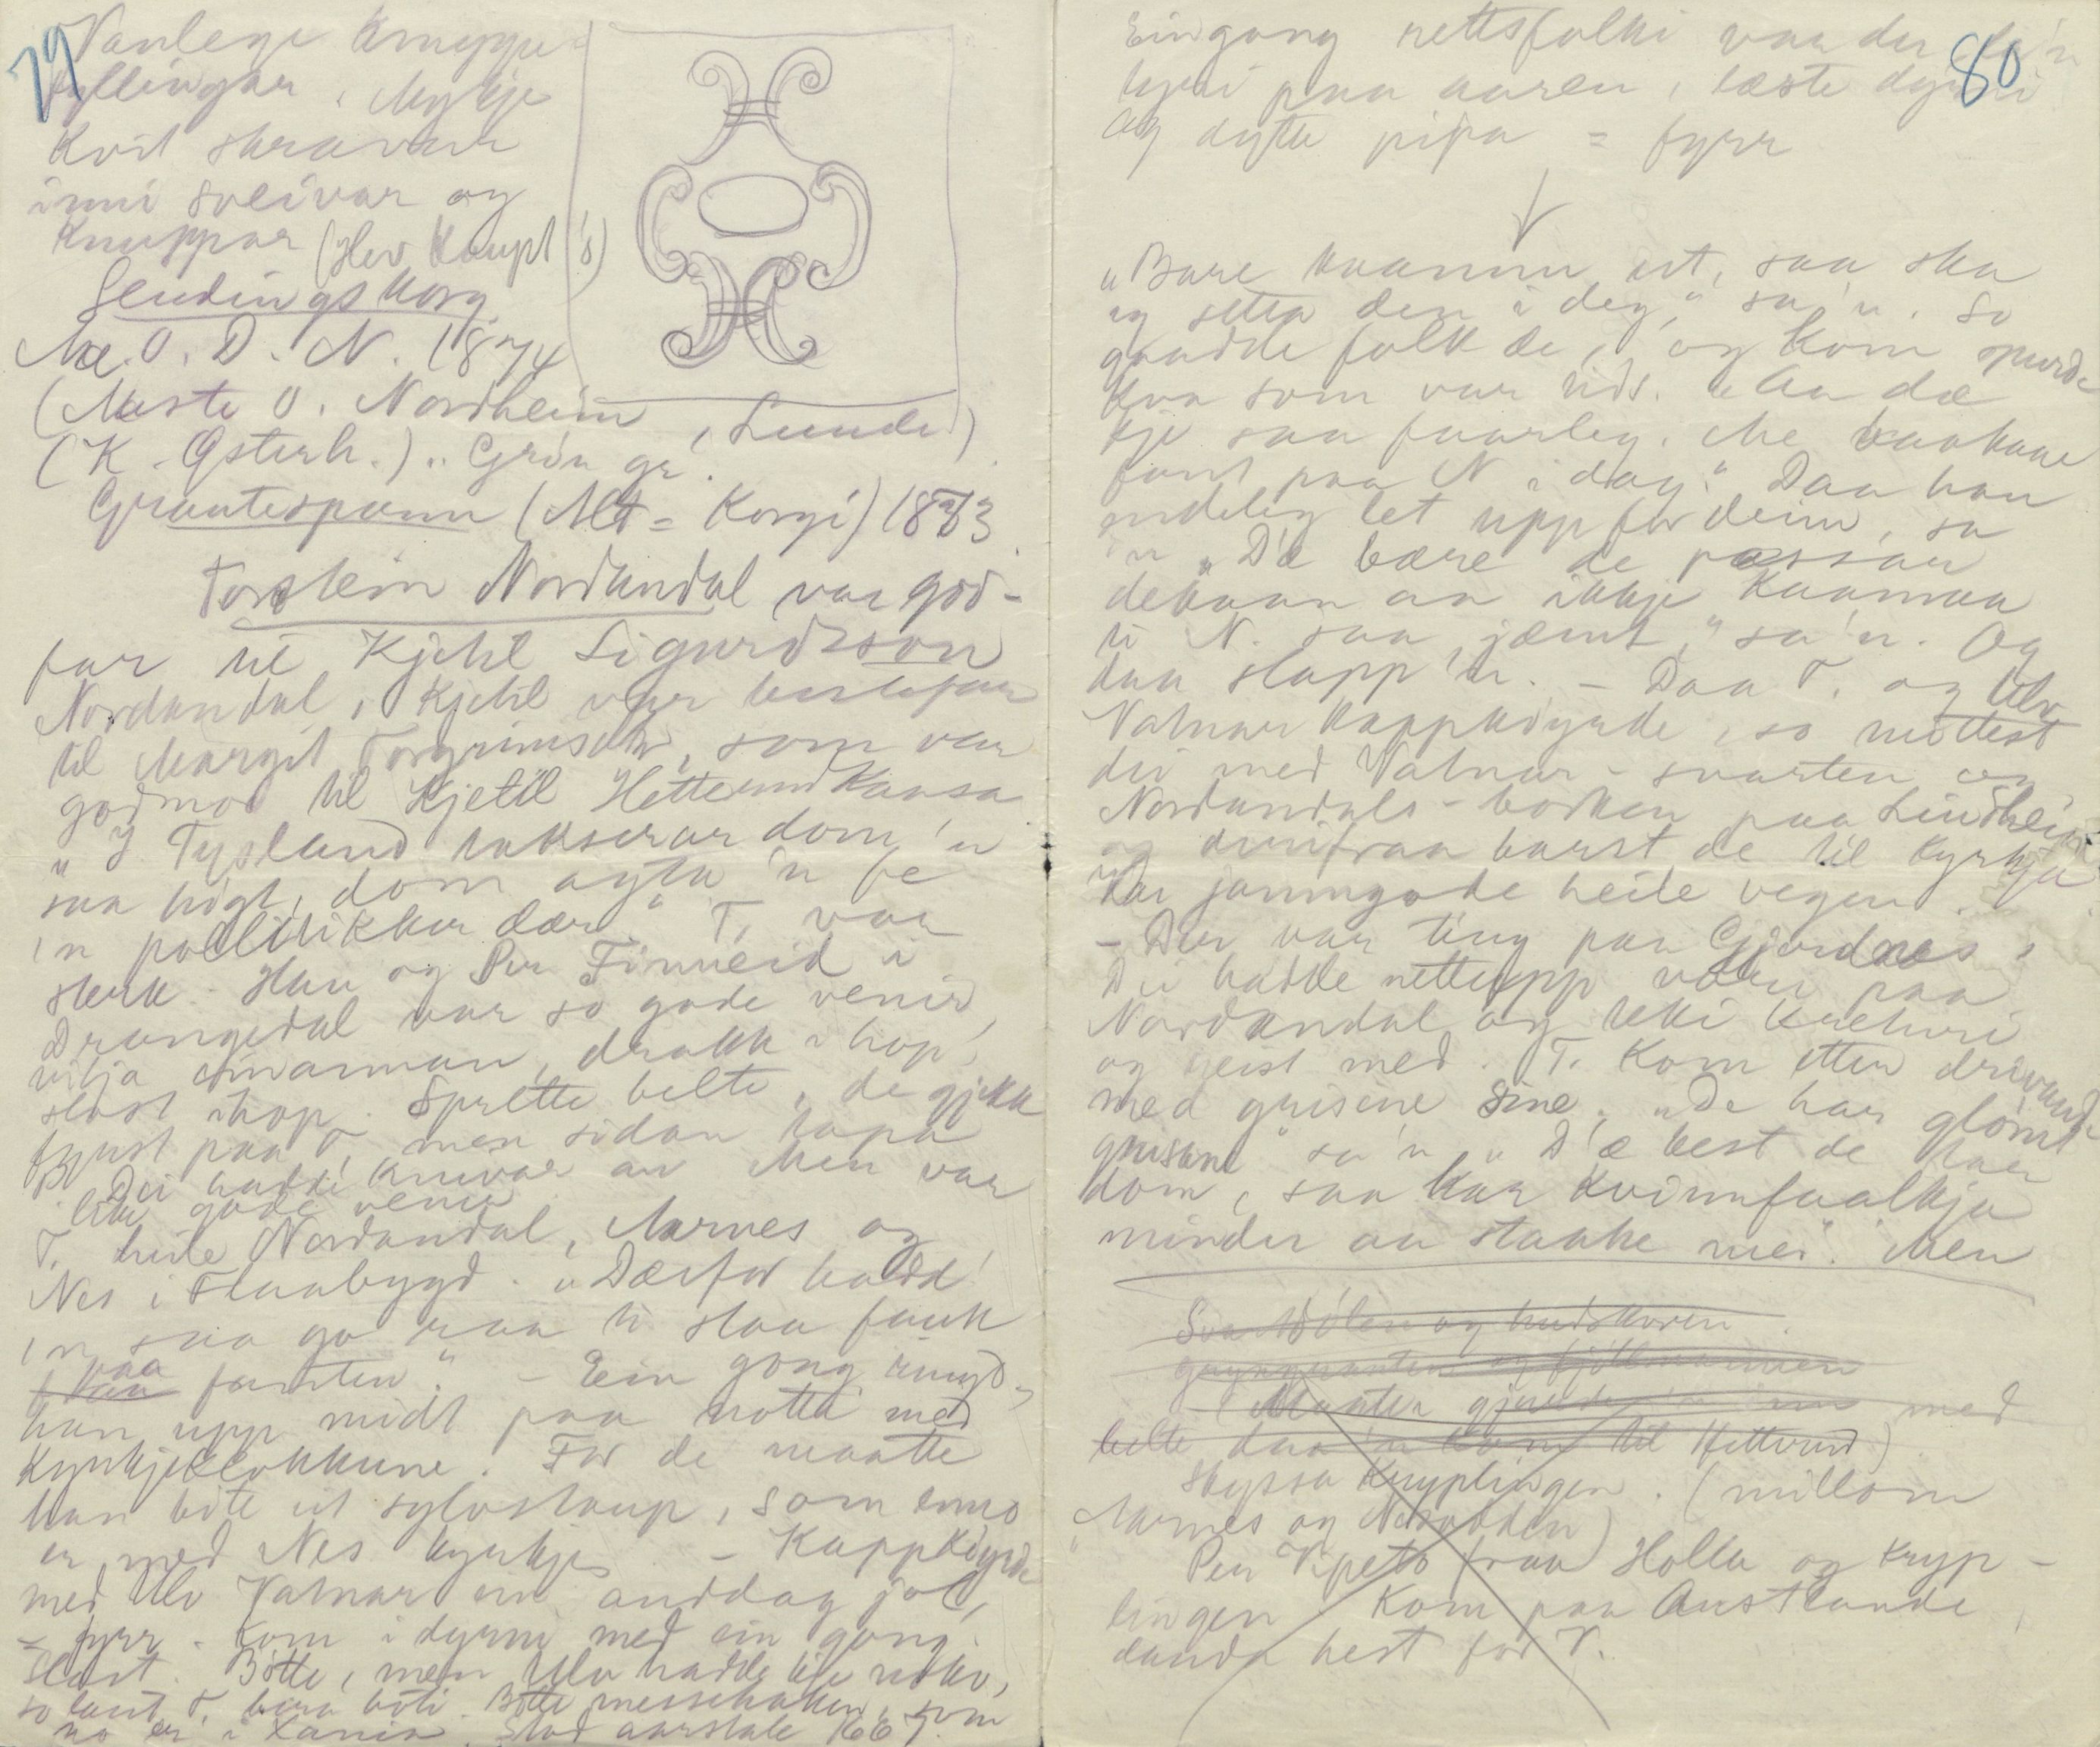 79
Vanlege kruggu
fyllingar, Mykje
kvit skravur
inni sveivar og
Knuppar (Hev Kaupt 'ó)
Sendingskorg
Mæ. O. D. N. 1874
(Meste O. Nordheim, Lunde)
(K. Østerh.) „ Grón gr.
Grautespann (Alt = Korgi) 1873.
Torstein Nordandal var god-
far til Kjetil Sigurdsson
Nordandal, Kjetil var bestefar
til Margit Torgrimsdtr, som var
godmor til Kjetil Hetteund Kaasa
„ I Tysland takserar dom 'n
saa høgt, dom agta 'n fe
'n pollitikkar dær." T. var
sterk. Han og Per Finneid i
Drangedal var so gode venir,
vitja einannan, drakk i hop,
slost ihop. Sprette belte, de gjekk
fyrst paa T, men sidan tapa
Dei hadde knivar av Men var
like gode venir
T. heile Nordandal, Aarnes og
Nes i Flaabygd. „ Dærfor hadd'
'n saa go raa ti slaa fank
paa fanten." – Ein gong ringd-
han upp midt paa notti med
Kyrkjeklokkune. For de maatte
han bøte ut sylvstaup, som enno
er med Nes kyrkje. – Kappkøyrde
med Ulv Vatnar ein anddag jol,
= fyrr. Kom i dyrni med ein gong.
Slost. Bøtte, men Ulv hadde lite noko,
so laut T. bera bóti. Bøtte messehaken, som
no er i Lanis. Stod aarstale 1667.

80
Eingong rettsfolki var der
lyri paa aaren, læste dyrni
og dytte pipa = fyrr
„ Bare kaamm ut, saa ska
eg setta den i deg," sa 'n. So
gaadde folk de, og kom spurde
kva som var tids. „ Aa dæ
kje saa faarleg. Me
paa N i dag." Daa han
endeleg let upp for deim, sa
'n „ Dæ bære de passar
dekaan aa ikkje kaamaa
ti N. saa jæmt," sa 'n. Og
daa slapp 'n. – Daa T. og Ulv
Vatnar Kappkøyrde, so møttest
dei med Vatnar-svarten og
Nordandals-borken paa Lindheim
og derifraa barst de til kyrkja
jamngode heile vegen.
– Der var ting paa Gjordnes,
Dei hadde nettupp vori paa
Nordandal og teki kreturi
og reist med. T. Kom etter drivande
med grisene sine, „ De har glömt
grisane" sa 'n „ D'æ best de haar
dom, saa har kvinnfaalkja
minder aa staake mei". Men
og hudskoren.

med
belte daa 'n kom til Hetteund)
Skyssa Kryplingen. (millom
Aarnes og Nesodden)
Per Vipeto fraa Holla og Kryp-
lingen. Kom paa Austlande
hest for T.